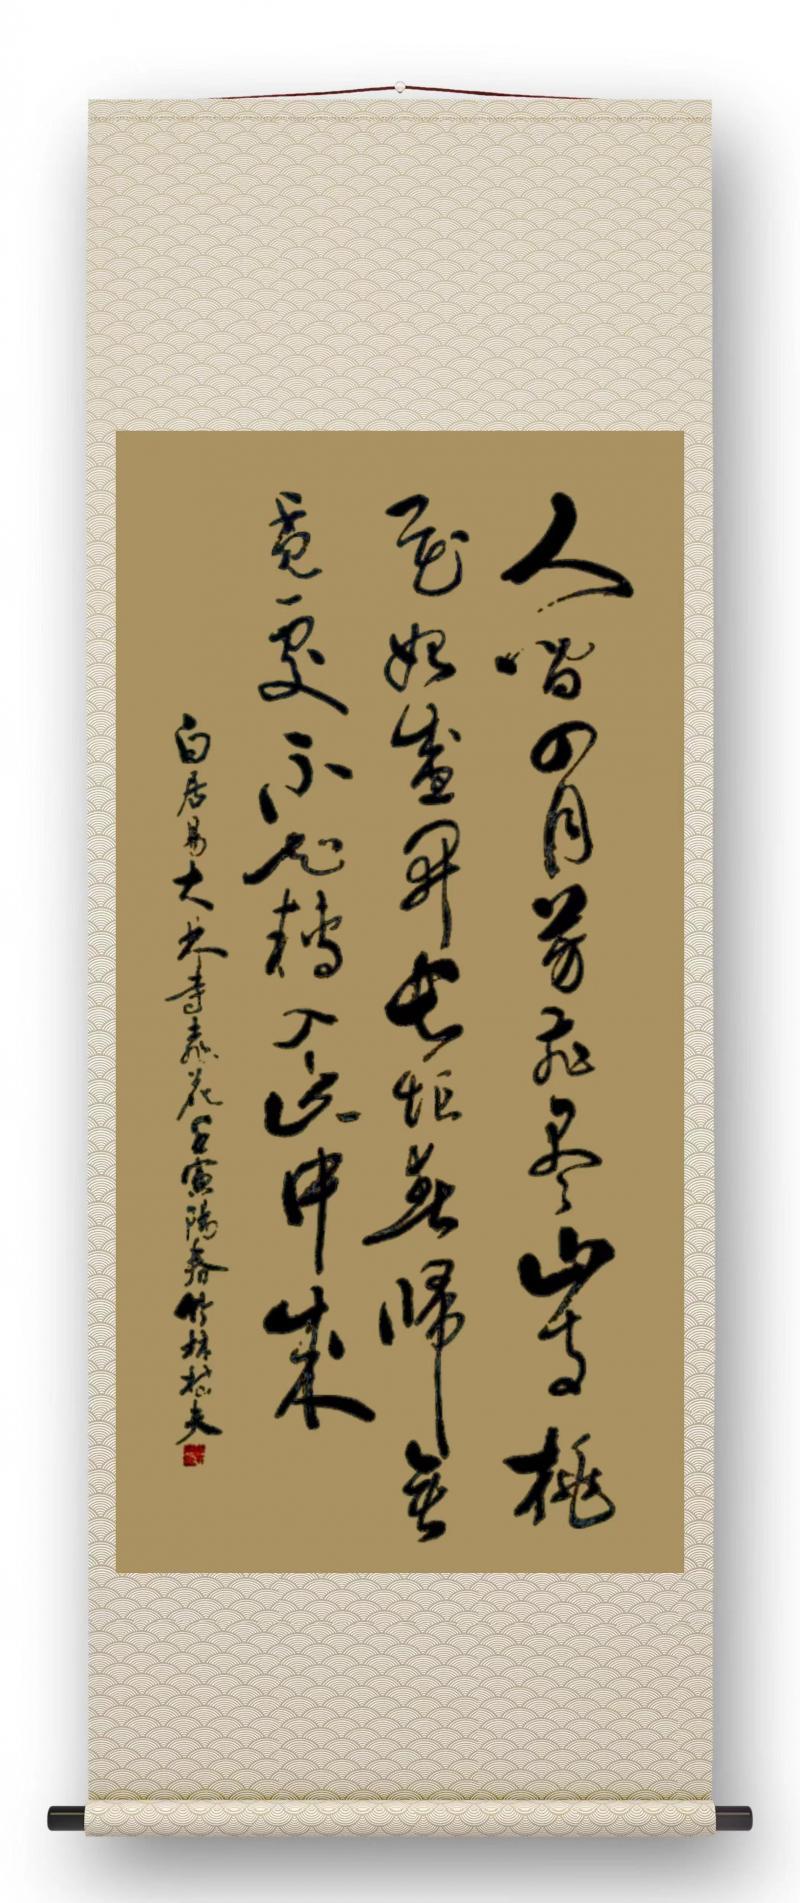 人間四月芳菲尽山寺桃
花始盛開長恨春歸無
覓處不知轉入此中來
白居易大林寺桃花壬寅陽春竹林夫